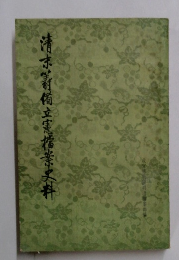 清末籌備立憲檔案史料